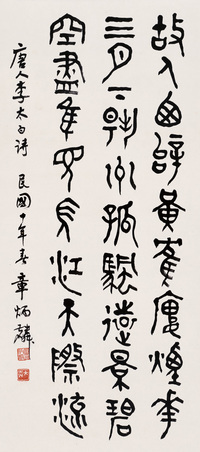 故人西辭黃隺廔煙華
三月下揚州孤颿遠景碧
空盡隹見長江天際流
唐人李太白詩 民國十年春 章炳麟